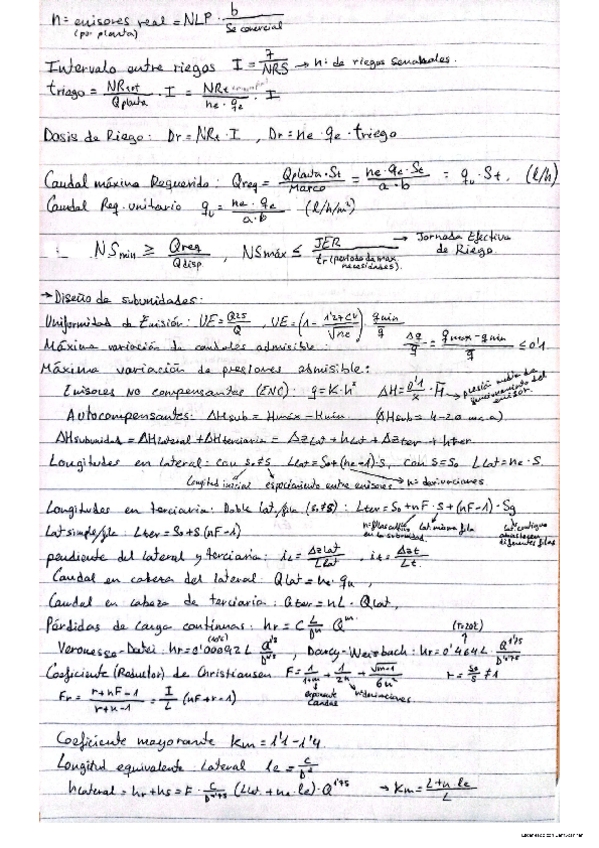 n = emisores real = NLP · b / Se comercial
(por planta)
Intervalo entre riegos I = 7 / NRS → nº de riegos semanales.
triego = NRt / Qplanta · I = NRt / ne · qe · I
Dosis de Riego: Dr = NRt · I , Dr = ne · qe · triego
Caudal máximo Requerido: Qreq = Qplanta · St / Marco = ne · qe · St / a · b = qu · St. (l/h)
Caudal Req. unitario qu = ne · qe / a · b (l/h/m²)
∴ NSmin ≥ Qreq / Qdisp , NSmáx ≤ JER / tr (periodo de max necesidades). → Jornada Efectiva de Riego.
→ Diseño de subunidades:
Uniformidad de Emisión: UE = Q25 / Q , UE = (1 − 1'27CV / √ne) · qmin / q
Máxima variación de caudales admisible: Δq / q = qmax − qmin / q ≤ 0'1
Máxima variación de presiones admisible:
Emisores NO compensantes (ENC): q = K · hˣ ΔH = 0'1 / x · H → presión media de funcionamiento del emisor.
Autocompensantes: ΔHsub = Hmáx − Hmin (ΔHsub = 4-20 m.c.a)
ΔHsubunidad = ΔHlateral + ΔHterciaria = ΔzLat + hLat + Δzter + hter
Longitudes en lateral: con so≠s LLat = So + (ne−1) · S, con S = So LLat = ne · S.
Longitud inicial espaciamiento entre emisores nº derivaciones
Longitudes en terciaria: Doble lat/fila (so≠s): Lter = So + nF · S + (nF−1) · Sg
Lat simple/fila: Lter = So + S (nF−1) nº filas cultivo en la subunidad lat. misma fila lat contiguo diferentes filas
pendiente del lateral y terciaria: iL = ΔzLat / LLat , it = Δzt / Lt.
Caudal en cabeza del lateral: QLat = ne · qu ,
Caudal en cabeza de terciaria: Qter = nL · QLat,
Pérdidas de carga continuas: hr = C L / Dⁿ Qᵐ (T=20ºC)
Veronesse-Datei: hr = 0'00092 L Q^1'8 / D^4'8 , Darcy-Weisbach: hr = 0'464 L Q^1'75 / D^4'75
Coeficiente (Reductor) de Christiansen F = 1 / 1+m + 1 / 2n + √m−1 / 6n² r = so / s ≠ 1
exponente Caudal nº derivaciones
Fr = r + nF − 1 / r + n − 1 = I / L (nF + r − 1)
Coeficiente mayorante Km = 1'1 − 1'4
Longitud equivalente: Lateral le = c / d
hlateral = hr + hs = F · C / D^4'75 (LLat + ne · le) · Q^1'75 → Km = L + n · le / L